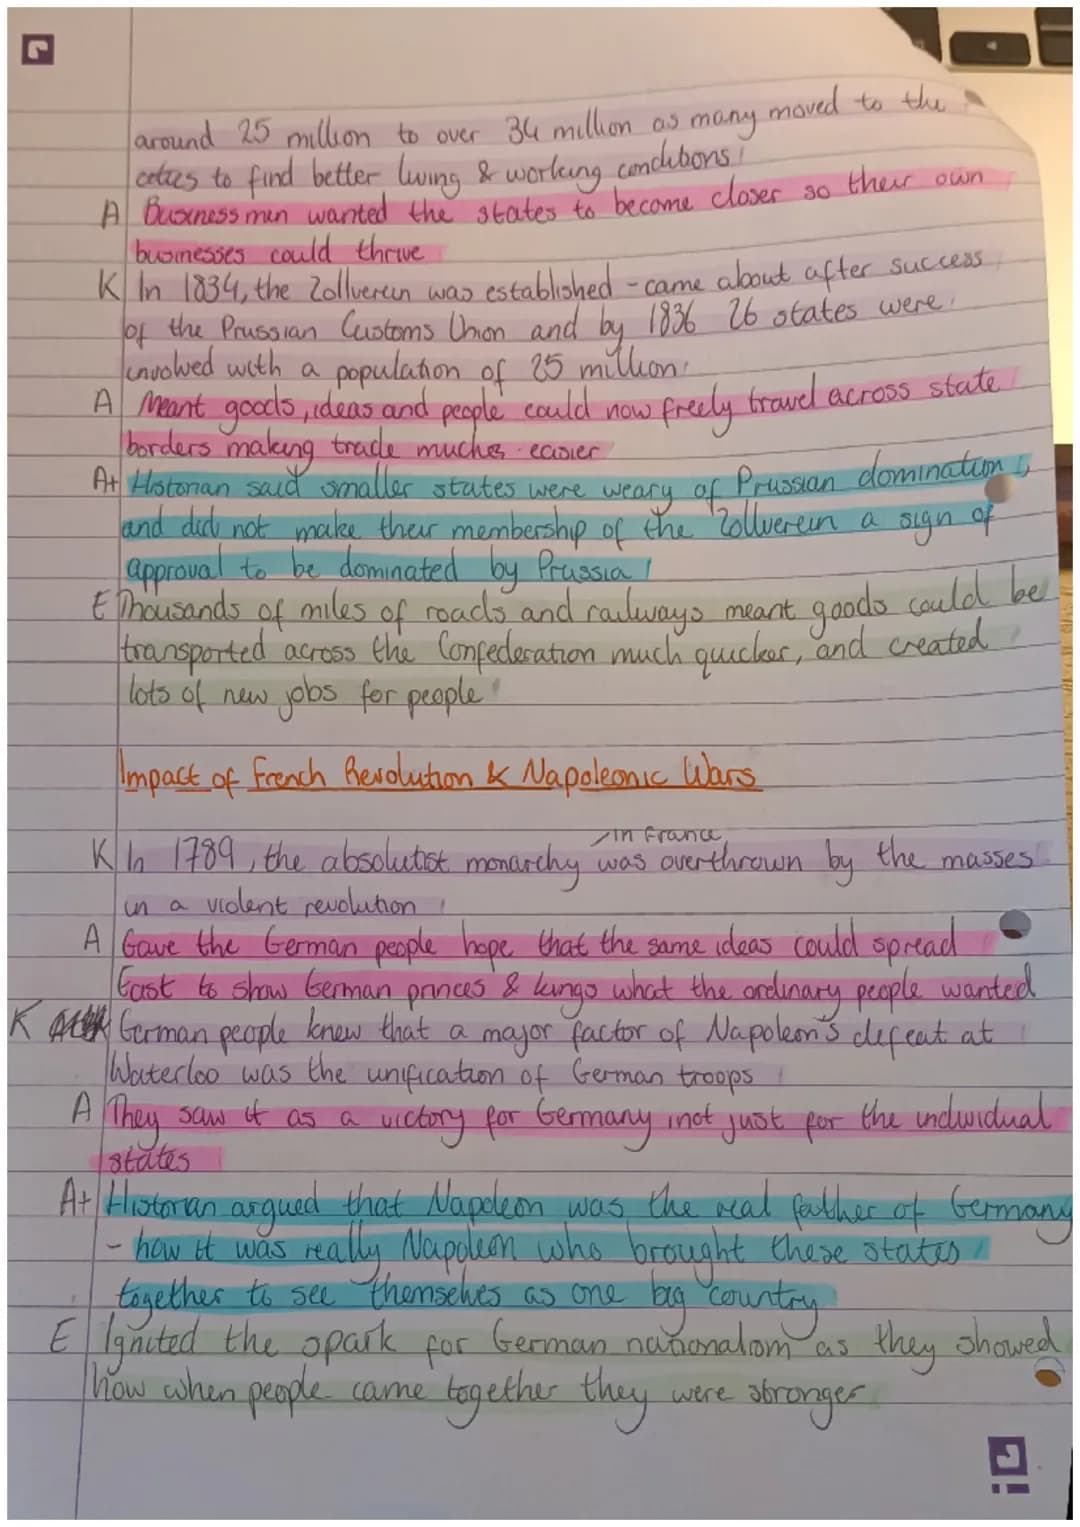 around 25 million to over 34 million as many moved to the
cities to find better living & working conditions
A Businessmen wanted the states to become closer so their own
businesses could thrive
K In 1834, the Zollverein was established - came about after success
of the Prussian Customs Union and by 1836 26 states were
involved with a population of 25 million
A Meant goods, ideas and people could now freely travel across state
borders making trade muches easier
A+ Historian said smaller states were weary of Prussian domination
and did not make their membership of the Zollverein a sign of
approval to be dominated by Prussia
E Thousands of miles of roads and railways meant goods could be
transported across the Confederation much quicker, and created
lots of new jobs for people
Impact of French Revolution & Napoleonic Wars
in France
K In 1789, the absolutist monarchy was overthrown by the masses
in a violent revolution
A Gave the German people hope that the same ideas could spread
East to show German princes & kings what the ordinary people wanted
K German people knew that a major factor of Napoleon's defeat at
Waterloo was the unification of German troops
A They saw it as a victory for Germany, not just for the individual
states
A+ Historian argued that Napoleon was the real father of Germany
- how it was really Napoleon who brought these states
together to see themselves as one big country
E Ignited the spark for German nationalism as they showed
how when people came together they were stronger